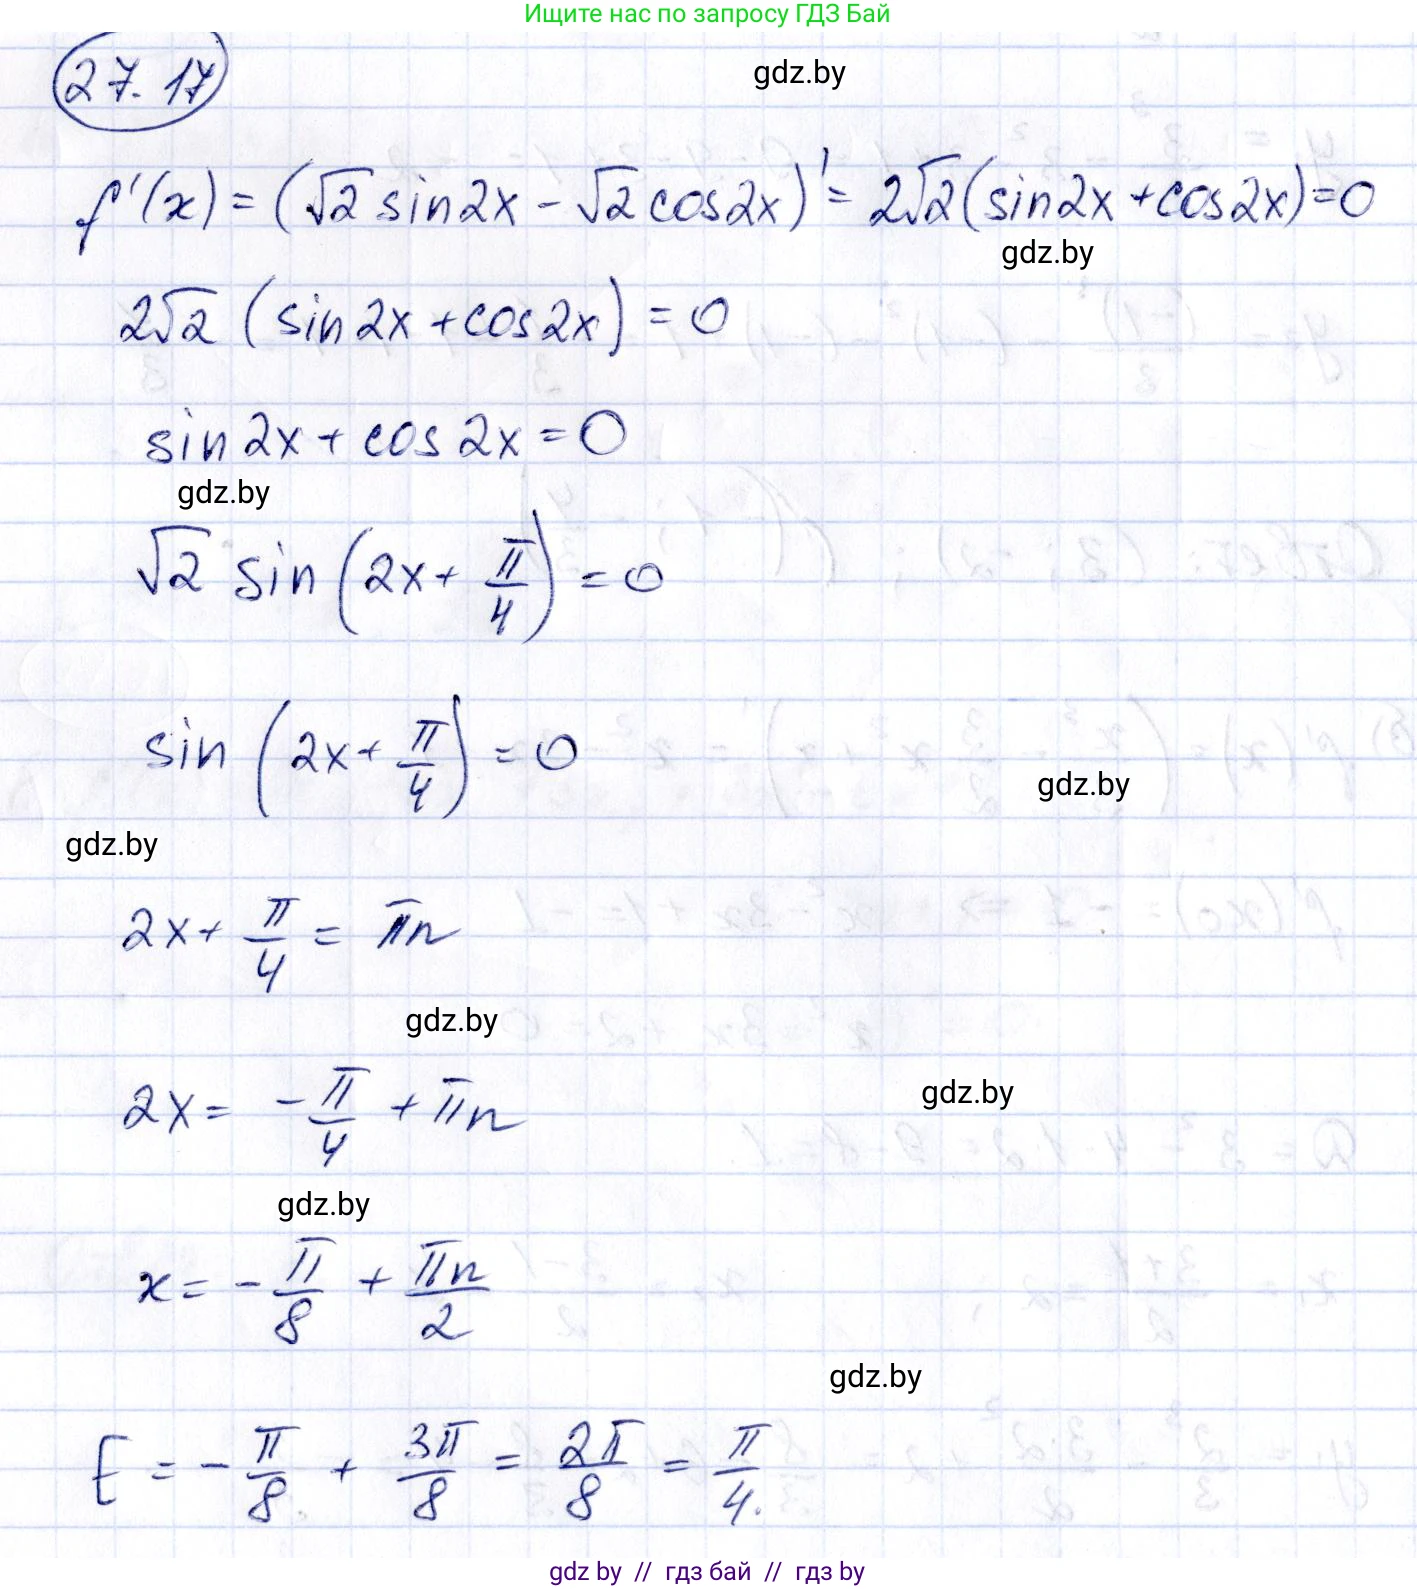 Ищите нас по запросу ГДЗ Бай
27.17
gdz.by
f'(x) = (√2 sin2x - √2 cos2x)' = 2√2 (sin2x + cos2x) = 0
gdz.by
2√2 (sin2x + cos2x) = 0
sin2x + cos2x = 0
gdz.by
√2 sin (2x + π/4) = 0
sin (2x + π/4) = 0
gdz.by
gdz.by
2x + π/4 = πn
gdz.by
2x = -π/4 + πn
gdz.by
gdz.by
x = -π/8 + πn/2
gdz.by
Σ = -π/8 + 3π/8 = 2π/8 = π/4.
gdz.by // гдз бай // гдз by